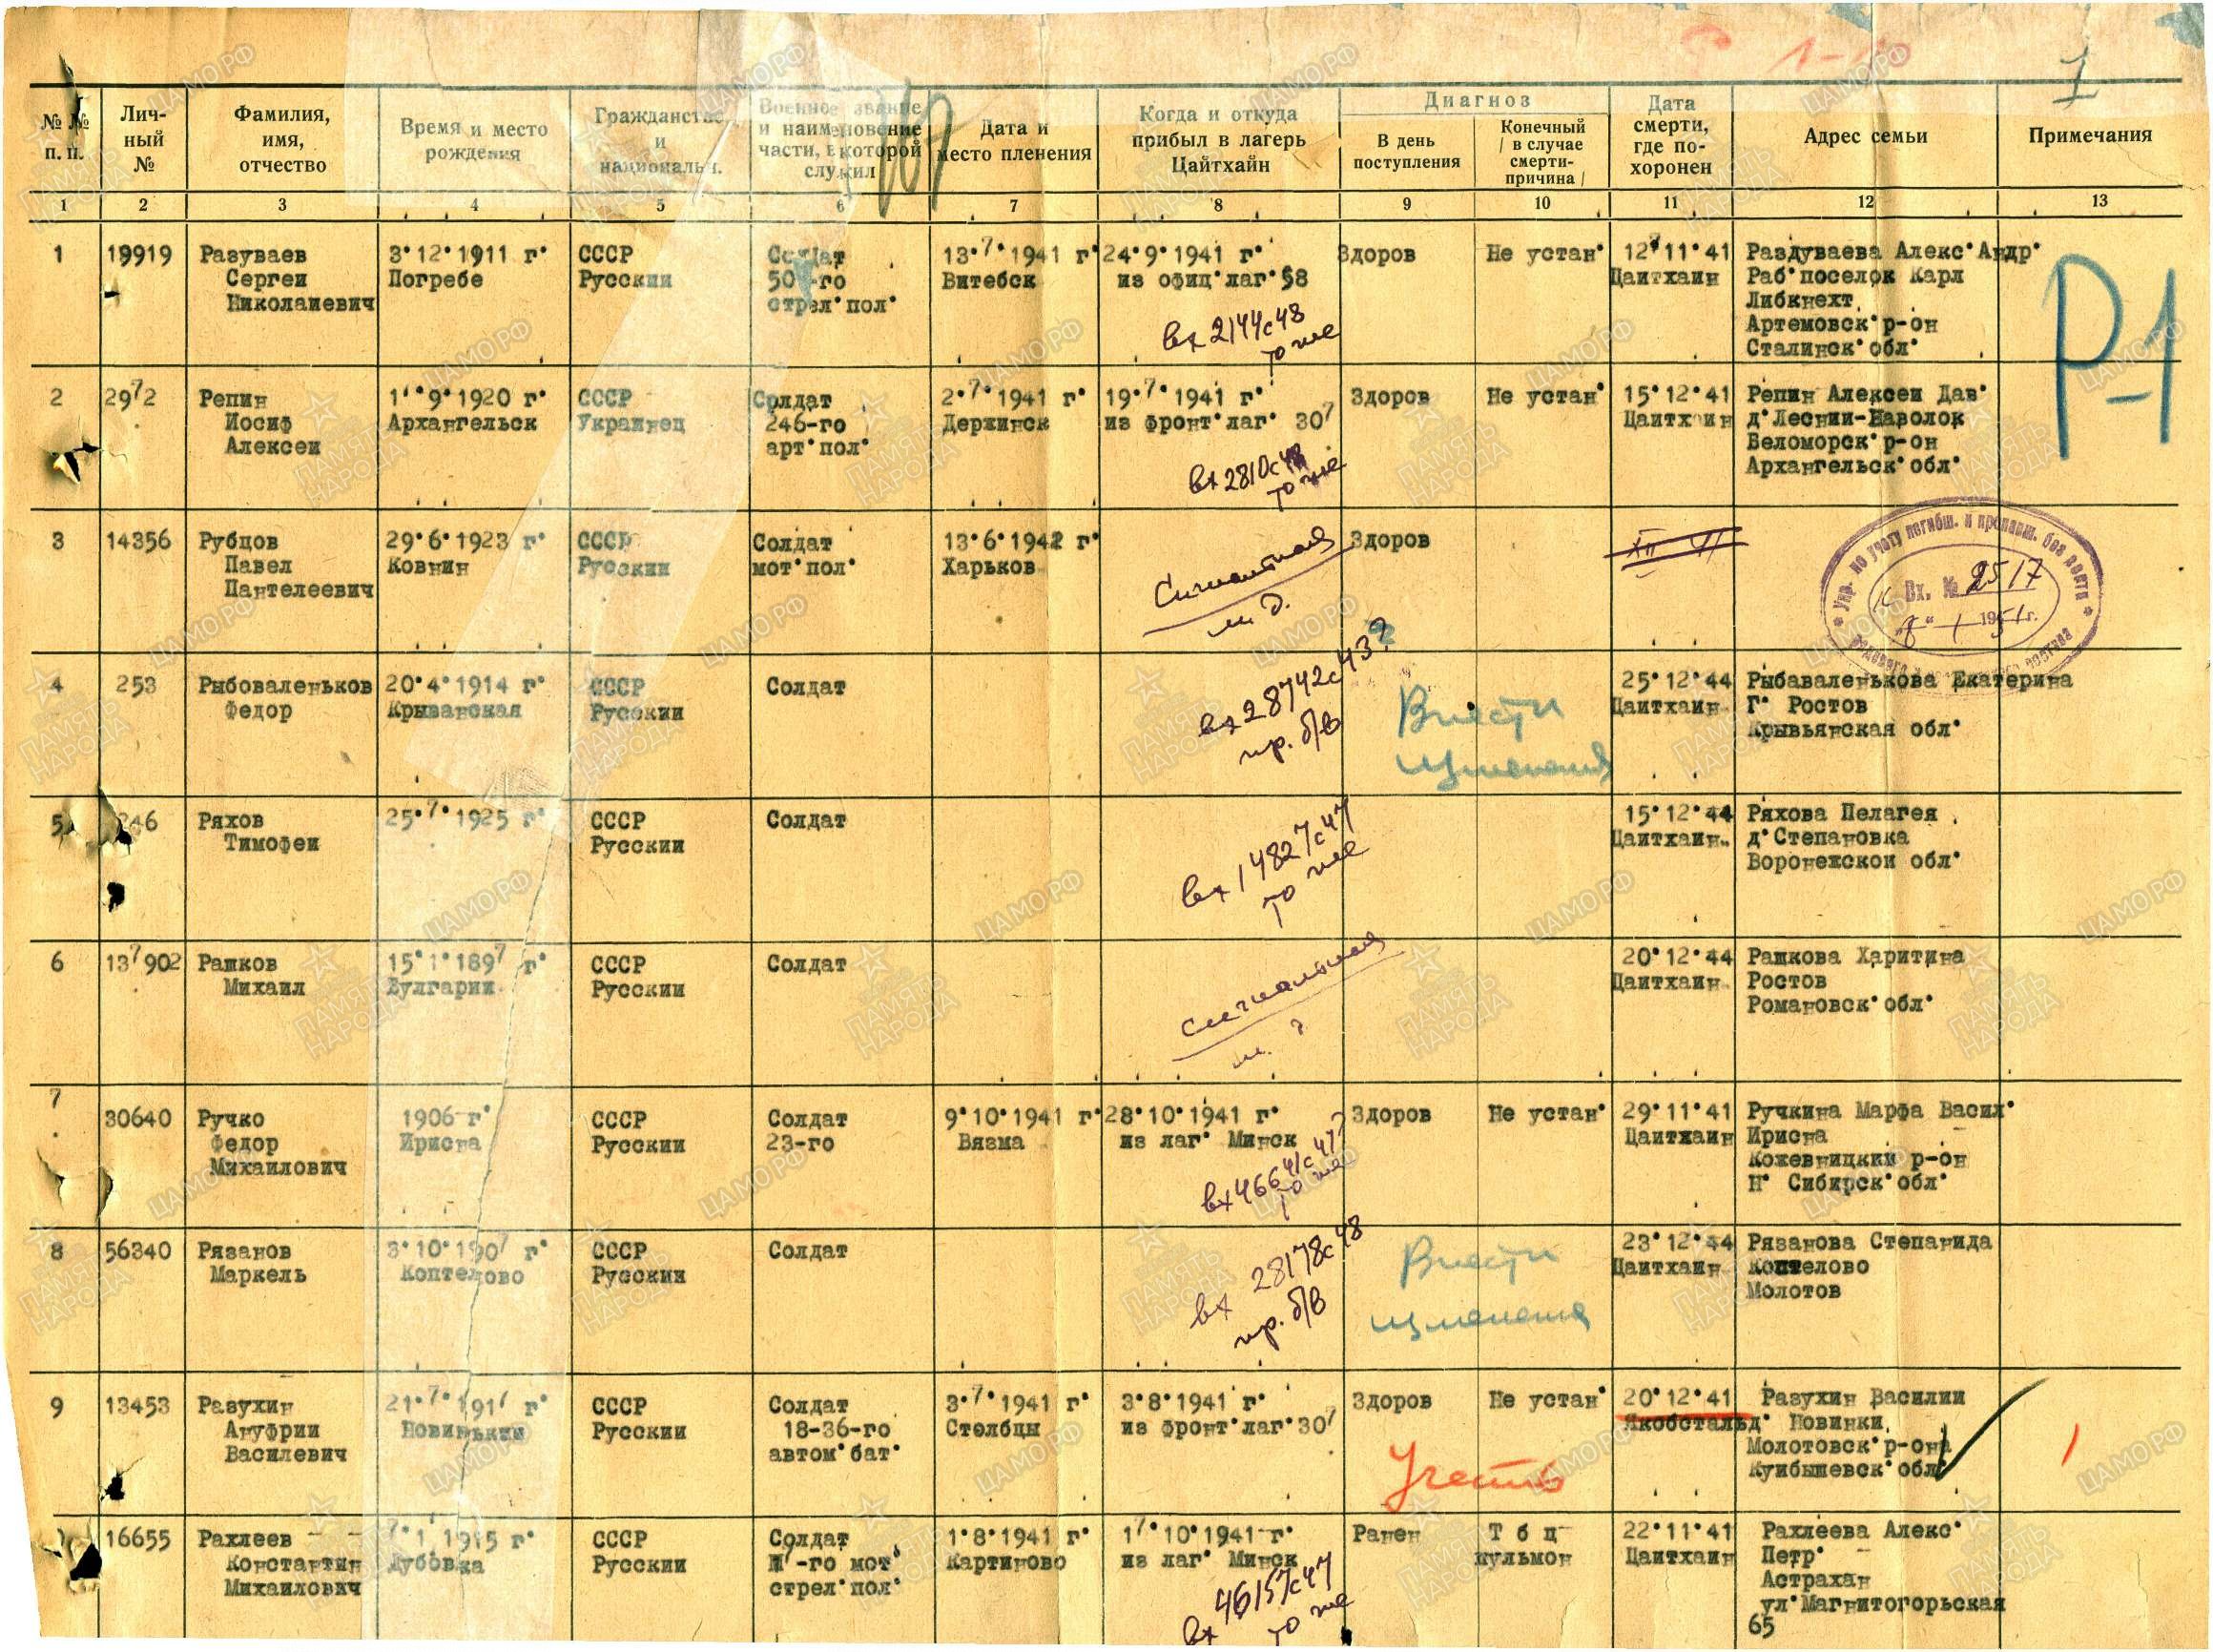 1
№ №
п. п.
Лич-
ный
№
Фамилия,
имя,
отчество
Время и место
рождения
Гражданство
и
национальн.
Военное звание
и наименование
части, в которой
служил
Дата и
место пленения
Когда и откуда
прибыл в лагерь
Цайтхайн
Диагноз
В день
поступления
Конечный
/ в случае
смерти-
причина /
Дата
смерти,
где по-
хоронен
Адрес семьи
Примечания
1 2 3 4 5 6 7 8 9 10 11 12 13
1 19919 Разуваев 3·12·1911 г· СССР Солдат 13·7·1941 г· 24·9·1941 г· Здоров Не устан· 12·11·41 Раздуваева Алекс·Андр·
Сергеи Погребе Русскии 50 -го Витебск из офиц·лаг·58 Цаитхаин Раб·поселок Карл
Николаиевич стрел·пол· Либкнехт
Артемовск·р-он
Сталинск·обл·
вх 2144с48
то же
Р-1
2 2972 Репин 1·9·1920 г· СССР Солдат 2·7·1941 г· 19·7·1941 г· Здоров Не устан· 15·12·41 Репин Алексеи Дав·
Иосиф Архангельск Украинец 246-го Держинск из фронт·лаг· 307 Цаитхаин д·Леснии-Наволок
Алексеи арт·пол· Беломорск·р-он
Архангельск·обл·
вх 2810с48
то же
3 14356 Рубцов 29·6·1923 г· СССР Солдат 13·6·1942 г· Здоров
Павел Ковнин Русскии мот·пол· Харьков
Пантелеевич
Сигнальная
Упр. по учету погибш. и пропавш. без вести
Вх. № 2517
"8" 1 1951г.
4 253 Рыбоваленьков 20·4·1914 г· СССР Солдат 25·12·44 Рыбаваленькова Екатерина
Федор Крыванская Русскии Цаитхаин Г· Ростов
Крывьянская обл·
вх 28742с43?
пр. б/в
Внести
изменения
5 246 Ряхов 25·7·1925 г· СССР Солдат 15·12·44 Ряхова Пелагея
Тимофеи Русскии Цаитхаин д·Степановка
Воронежскои обл·
вх 14827с47
то же
6 137902 Рашков 15·1·1897 г· СССР Солдат 20·12·44 Рашкова Харитина
Михаил Булгарии Русскии Цаитхаин Ростов
Романовск·обл·
сигнальная
7 30640 Ручко 1906 г· СССР Солдат 9·10·1941 г· 28·10·1941 г· Здоров Не устан· 29·11·41 Ручкина Марфа Васил·
Федор Ирисна Русскии 23-го Вязма из лаг· Минск Цаитхаин Ирисна
Михаилович Кожевницким р-он
Н· Сибирск·обл·
вх 46641с47?
то же
8 56340 Рязанов 3·10·1907 г· СССР Солдат 23·12·44 Рязанова Степанида
Маркель Коптелово Русскии Цаитхаин Коптелово
Молотов
вх 28178с48
пр. б/в
Внести
изменения
9 13453 Разухин 21·7·1917 г· СССР Солдат 3·7·1941 г· 3·8·1941 г· Здоров Не устан· 20·12·41 Разухин Василии
Ануфрии Новиньким Русскии 18-36-го Столбцы из фронт·лаг·307 Якобстальд· Новинки
Василевич автом·бат· Молотовск·р-она
Куибышевск·обл·
Учесть
16655 Рахлеев 7·1 1915 г· СССР Солдат 1·8·1941 г· 17·10·1941 г· Ранен Т б ц 22·11·41 Рахлеева Алекс·
Константин Дубовка Русскии -го мот· Картиново из лаг· Минск пульмон Цаитхаин Петр·
Михаилович стрел·пол· Астрахан
ул·Магнитогорьская
65
вх 46157с47
то же